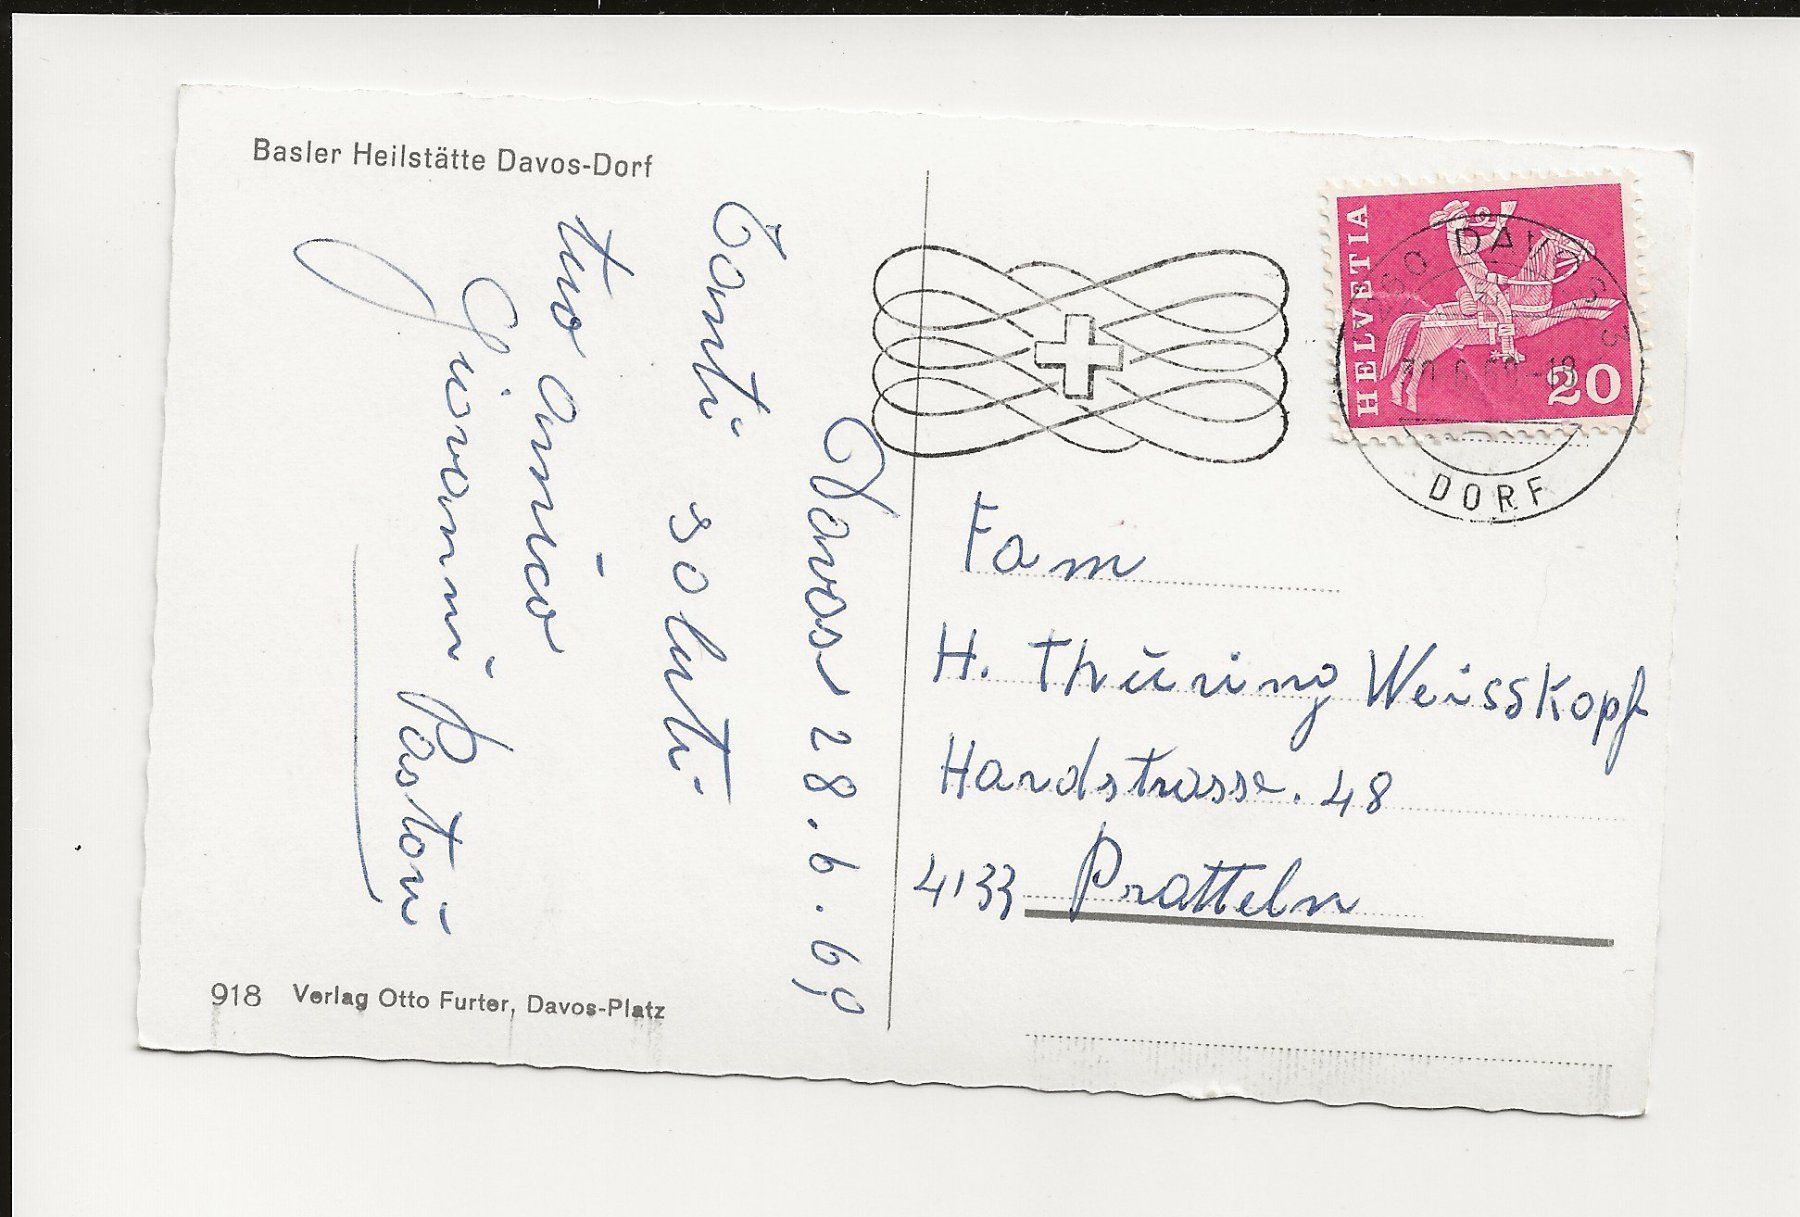 Basler Heilstätte Davos-Dorf
Davos 28.6.69
Tanti saluti
tuo amico
Giovanni Pastori
918 Verlag Otto Furter, Davos-Platz
HELVETIA
20
DAVOS
30.6.69-18
DORF
Fam
H. Thüring Weisskopf
Hardstrasse. 48
4133 Pratteln